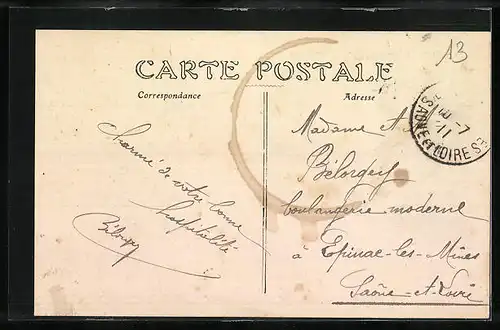 13
CARTE POSTALE
Correspondance
Adresse
SAONE et LOIRE
-7
11
Charmé de
votre bonne
hospitalité
Bélorgey
Madame A
Bélorgey
boulangerie moderne
à Epinac-les-Mines
Saône-et-Loire